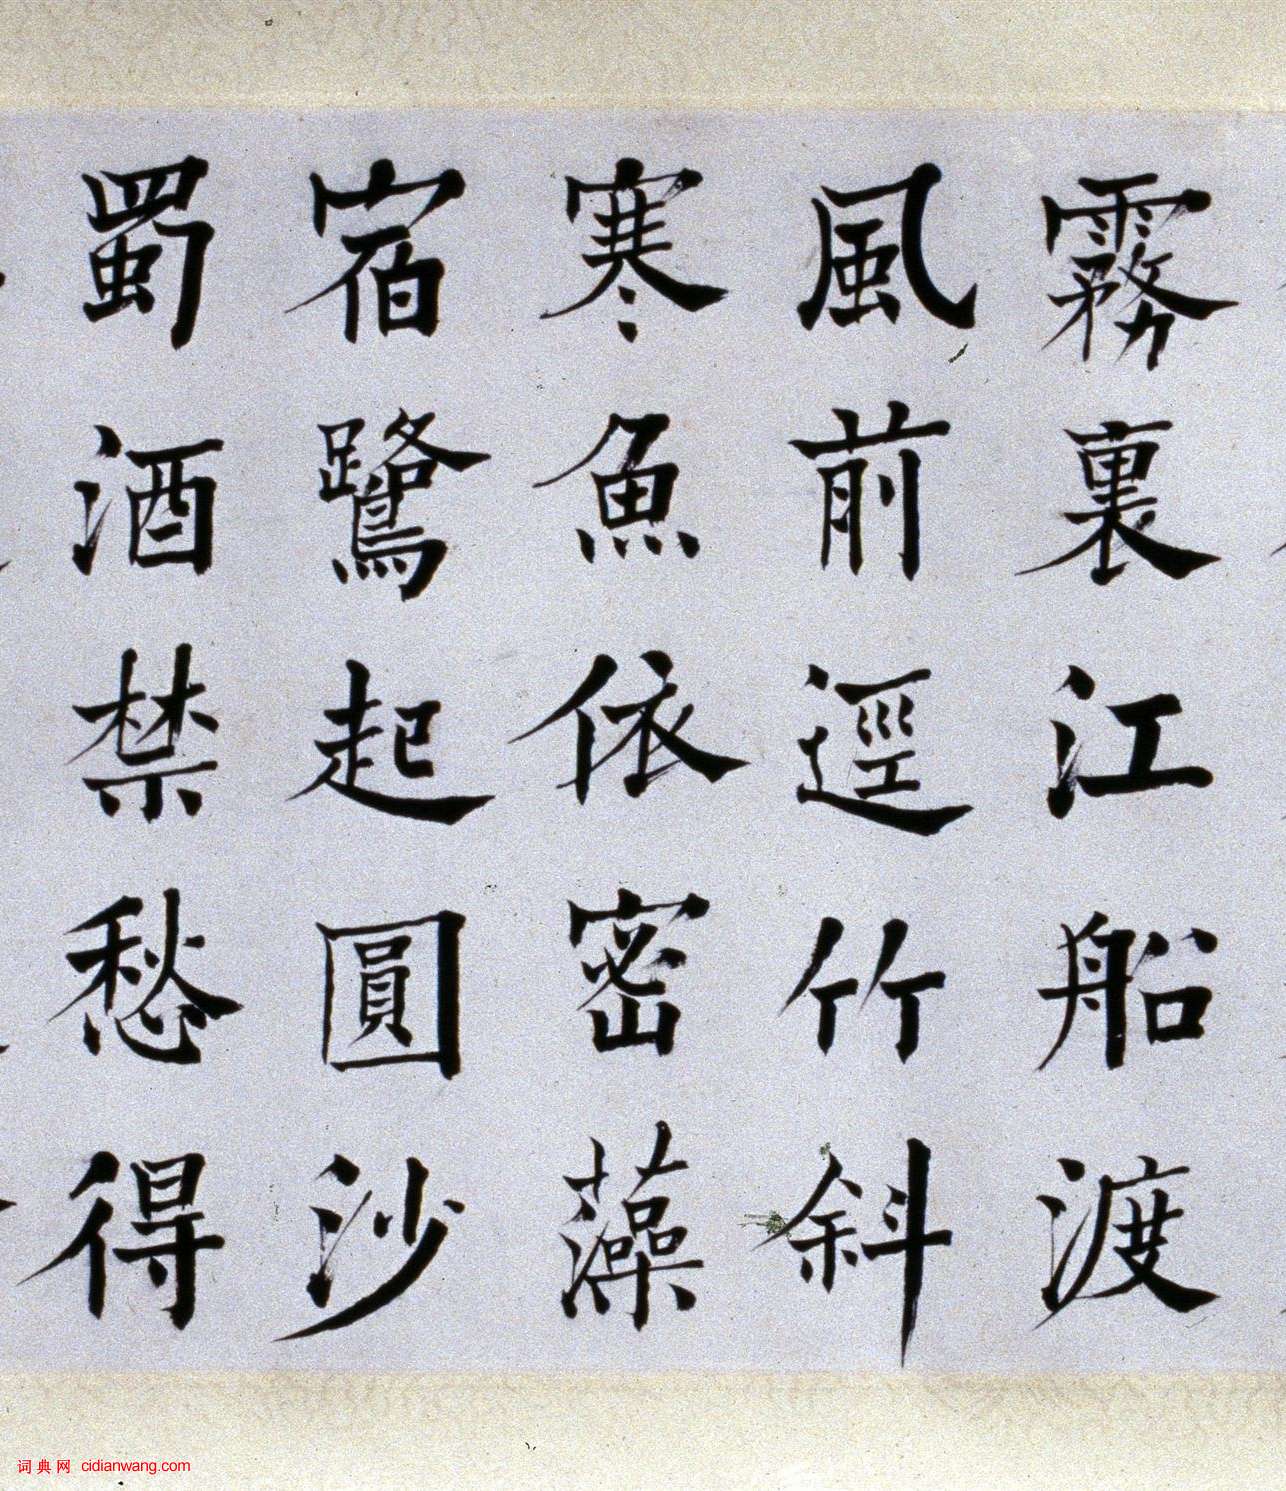 霧裏江船渡
風前逕竹斜
寒魚依密藻
宿鷺起圓沙
蜀酒禁愁得
词典网 cidianwang.com